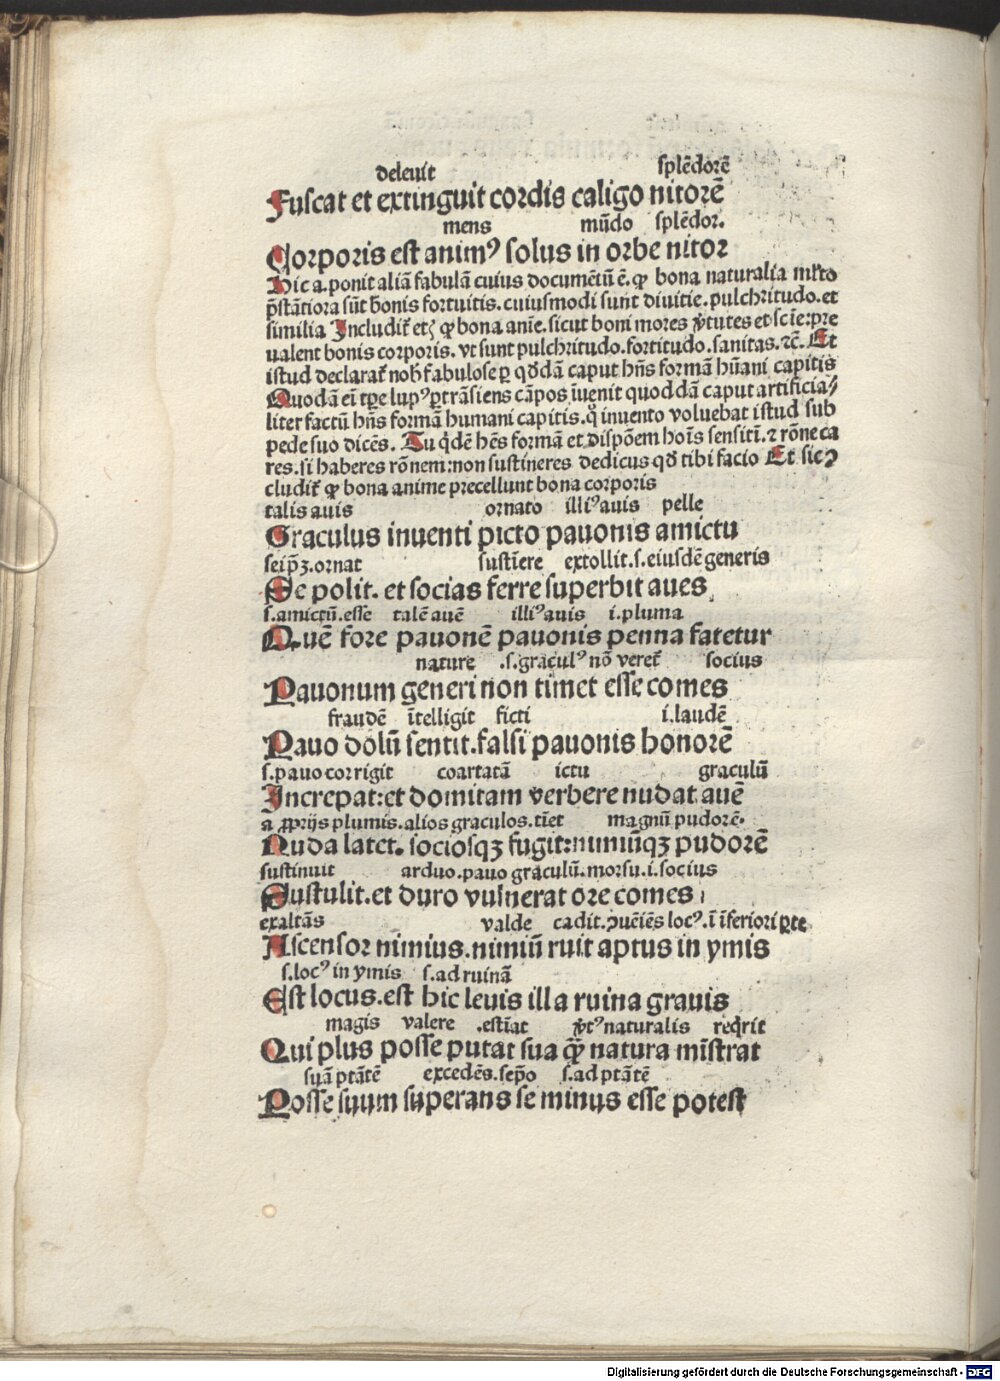 deleuit splēdorē
Fuscat et extinguit cordis caligo nitorē
mens mūdo splēdor.
Corporis est animꝰ solus in orbe nitor
Hic a. ponit aliā fabulā cuius documētū ē. ꝙ bona naturalia ml̅to
p̄stātiora sūt bonis fortuitis. cuiusmodi sunt diuitie. pulchritudo. et
similia Includit̄ etꝫ ꝙ bona anīe. sicut boni mores v̓tutes et scīe: pre
ualent bonis corporis. vt sunt pulchritudo. fortitudo. sanitas. ꝛc̄. Et
istud declarat̄ nob̄ fabulose ꝑ qōdā caput hn̄s formā hūani capitis
Quodā eī tp̄e lupꝰ ꝑtrāsiens cāpos īuenit quoddā caput artificia/
liter factū hn̄s formā humani capitis. q̊ inuento voluebat istud sub
pede suo dicēs. Tu q̇dē hēs formā et dispōem hoīs sensitī. ꝛ rōne ca
res. si haberes rōnem: non sustineres dedicus qō tibi facio Et sic ꝯ
cludit̄ ꝙ bona anime precellunt bona corporis
talis auis ornato illiꝰ auis pelle
Graculus inuenti picto pauonis amictu
seip̄ꝫ. ornat sustīere extollit. s. eiusdē generis
Se polit. et socias ferre superbit aues
s. amictū. esse talē auē illiꝰ auis i. pluma
Quē fore pauonē pauonis penna fatetur
nature .s. graculꝰ nō veret̄ socius
Pauonum generi non timet esse comes
fraudē ītelligit ficti i. laudē
Pauo dolū sentit. falsi pauonis honorē
s. pauo corrigit coartatā ictu graculū
Increpat: et domitam verbere nudat auē
a ꝓprijs plumis. alios graculos. tīet magnū pudorē.
Nuda latet. sociosqꝫ fugit: nimiūqꝫ pudorē
sustinuit arduo. pauo graculū. morsu. i. socius
Sustulit. et duro vulnerat ore comes
exaltās valde cadit. ꝯueīēs locꝰ. ī īferiori ꝑte
Ascensor nimius. nimiū ruit aptus in ymis
s. locꝰ in ymis s. ad ruinā
Est locus. est hic leuis illa ruina grauis
magis valere .estīat v̓tꝰ naturalis reqrit
Qui plus posse putat sua ꝙ̄ natura mīstrat
suā ptātē excedēs. sep̄o s. ad ptātē
Posse suum superans se minus esse potest
Digitalisierung gefördert durch die Deutsche Forschungsgemeinschaft - DFG